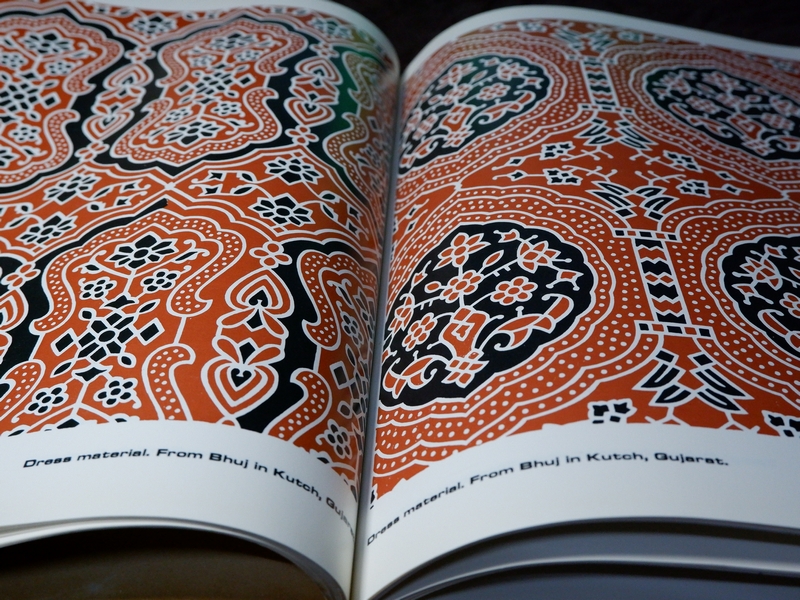 Dress material. From Bhuj in Kutch, Gujarat.
Dress material. From Bhuj in Kutch, Gujarat.